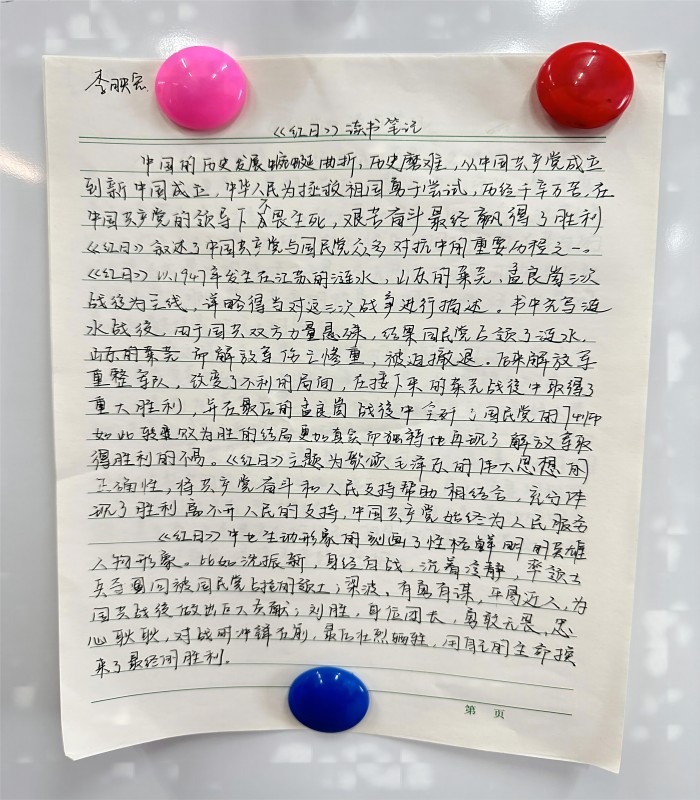 李映宏
《红日》读书笔记
中国的历史发展蜿蜒曲折,历史磨难,从中国共产党成立
到新中国成立,中华人民为拯救祖国勇于尝试,历经千辛万苦,在
中国共产党的领导下不畏生死,艰苦奋斗最终赢得了胜利
《红日》叙述了中国共产党与国民党众多对抗中的重要历程之一。
《红日》以1947年发生在江苏的涟水,山东的莱芜、孟良崮三次
战役为主线,详略得当对这三次战争进行描述。书中先写涟
水战役,由于国共双方力量悬殊,结果国民党占领了涟水,
山东的莱芜 而解放军伤亡惨重,被迫撤退。后来解放军
重整军队,改变了不利的局面,在接下来的莱芜战役中取得了
重大胜利,并在最后的孟良崮战役中全歼了国民党的74师
如此转败为胜的结局更加真实而独特地再现了解放军取
得胜利的不易。《红日》主题为歌颂毛泽东的伟大思想的
正确性,将共产党奋斗和人民支持帮助相结合,充分体
现了胜利离不开人民的支持,中国共产党始终为人民服务
《红日》中也生动形象的刻画了性格鲜明的英雄
人物形象。比如沈振新,身经百战,沉着冷静,率领士
兵夺回被国民党占据的领土;梁波,有勇有谋,平易近人,为
国共战役做出巨大贡献;刘胜,身位团长,勇敢无畏,忠
心耿耿,对战时冲锋在前,最后壮烈牺牲,用自己的生命换
来了最终的胜利。
第 页